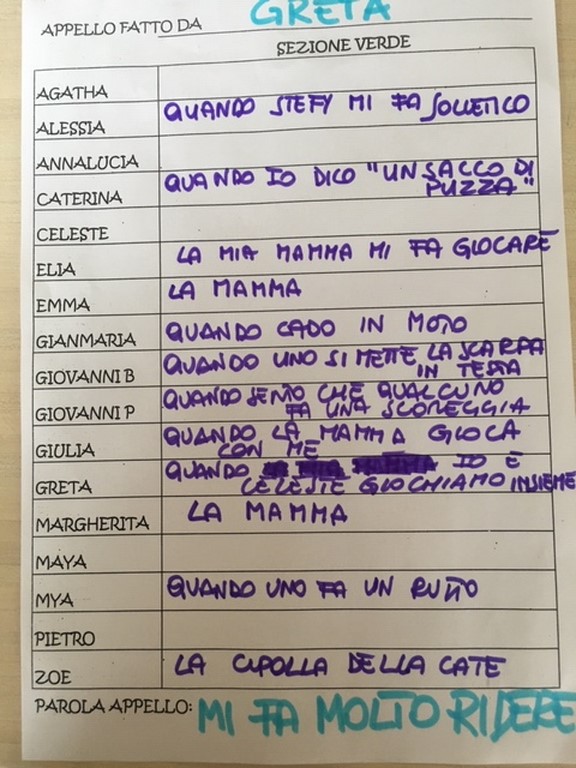 APPELLO FATTO DA GRETA
SEZIONE VERDE
AGATHA
ALESSIA QUANDO STEFY MI FA SOLLETICO
ANNALUCIA
CATERINA QUANDO IO DICO "UN SACCO DI
PUZZA"
CELESTE
ELIA LA MIA MAMMA MI FA GIOCARE
EMMA LA MAMMA
GIANMARIA QUANDO CADO IN MOTO
GIOVANNI B QUANDO UNO SI METTE LA SCARPA
IN TESTA
GIOVANNI P QUANDO SENTO CHE QUALCUNO
FA UNA SCOREGGIA
GIULIA QUANDO LA MAMMA GIOCA
CON ME
GRETA QUANDO IO E
CELESTE GIOCHIAMO INSIEME
MARGHERITA LA MAMMA
MAYA
MYA QUANDO UNO FA UN RUTTO
PIETRO
ZOE LA CIPOLLA DELLA CATE
PAROLA APPELLO: MI FA MOLTO RIDERE